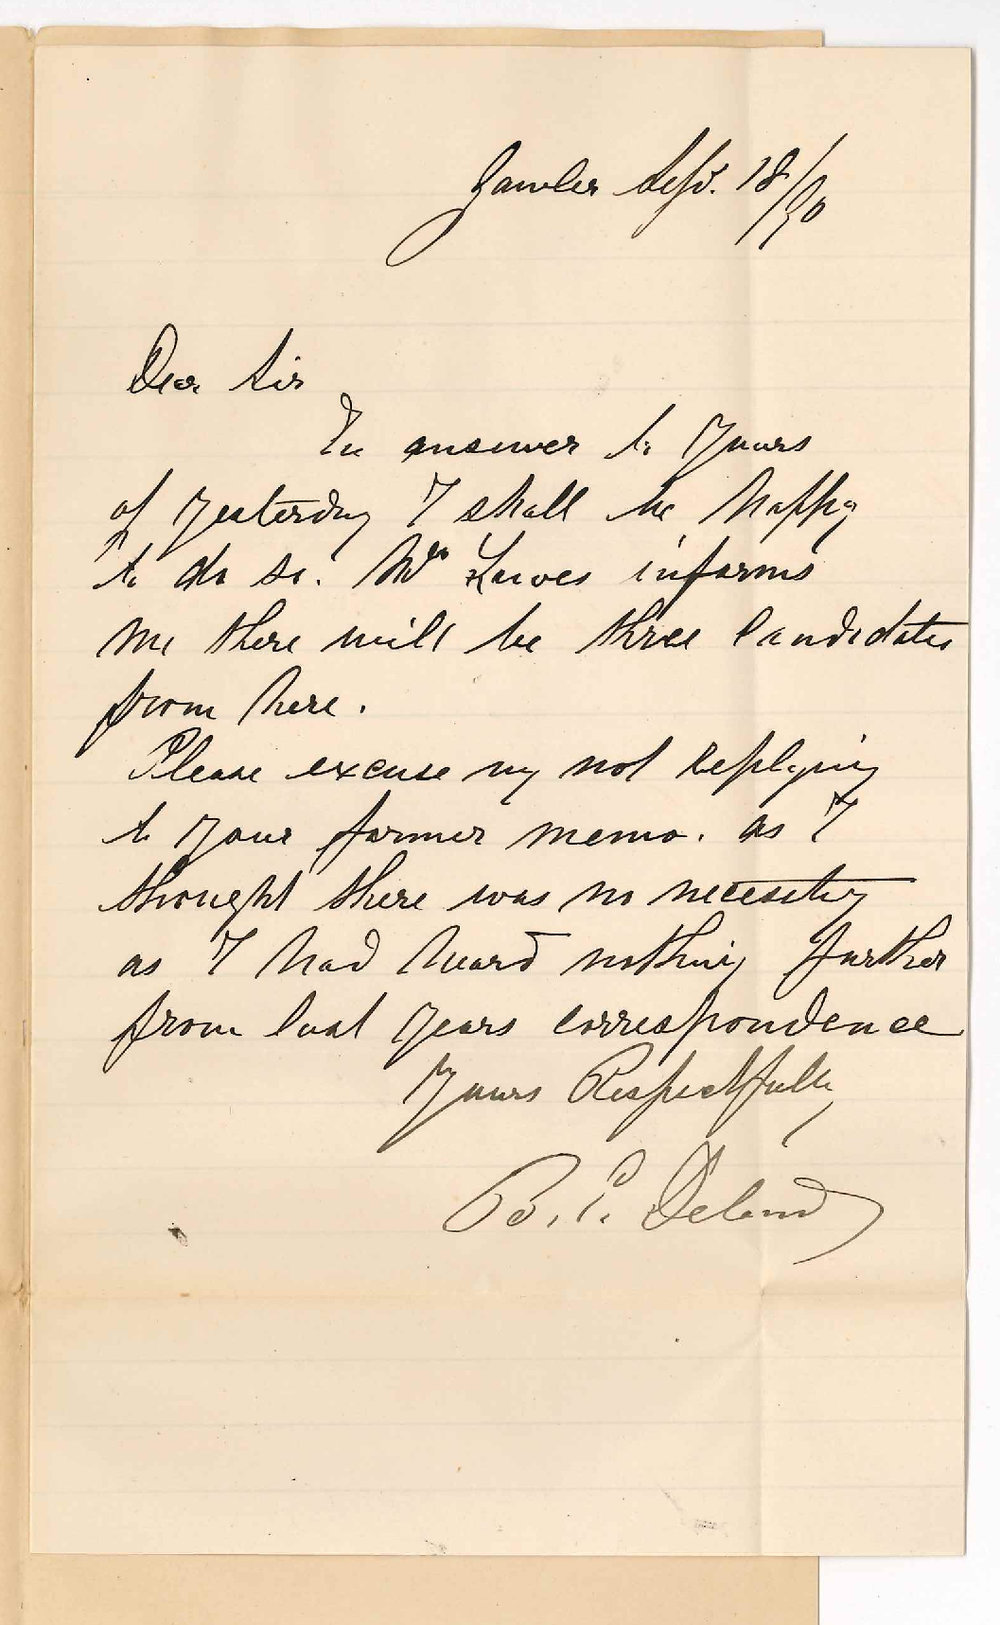 Gawler Sept. 18/90
Dear Sir
In answer to Yours
of Yesterday I shall be happy
to do so. Mr Lawes informs
me there will be three Candidates
from here.
Please excuse my not Replying
to Your former memo. as I
thought there was no necessity
as I had heard nothing further
from last Years correspondence
Yours Respectfully
B. P. Deland